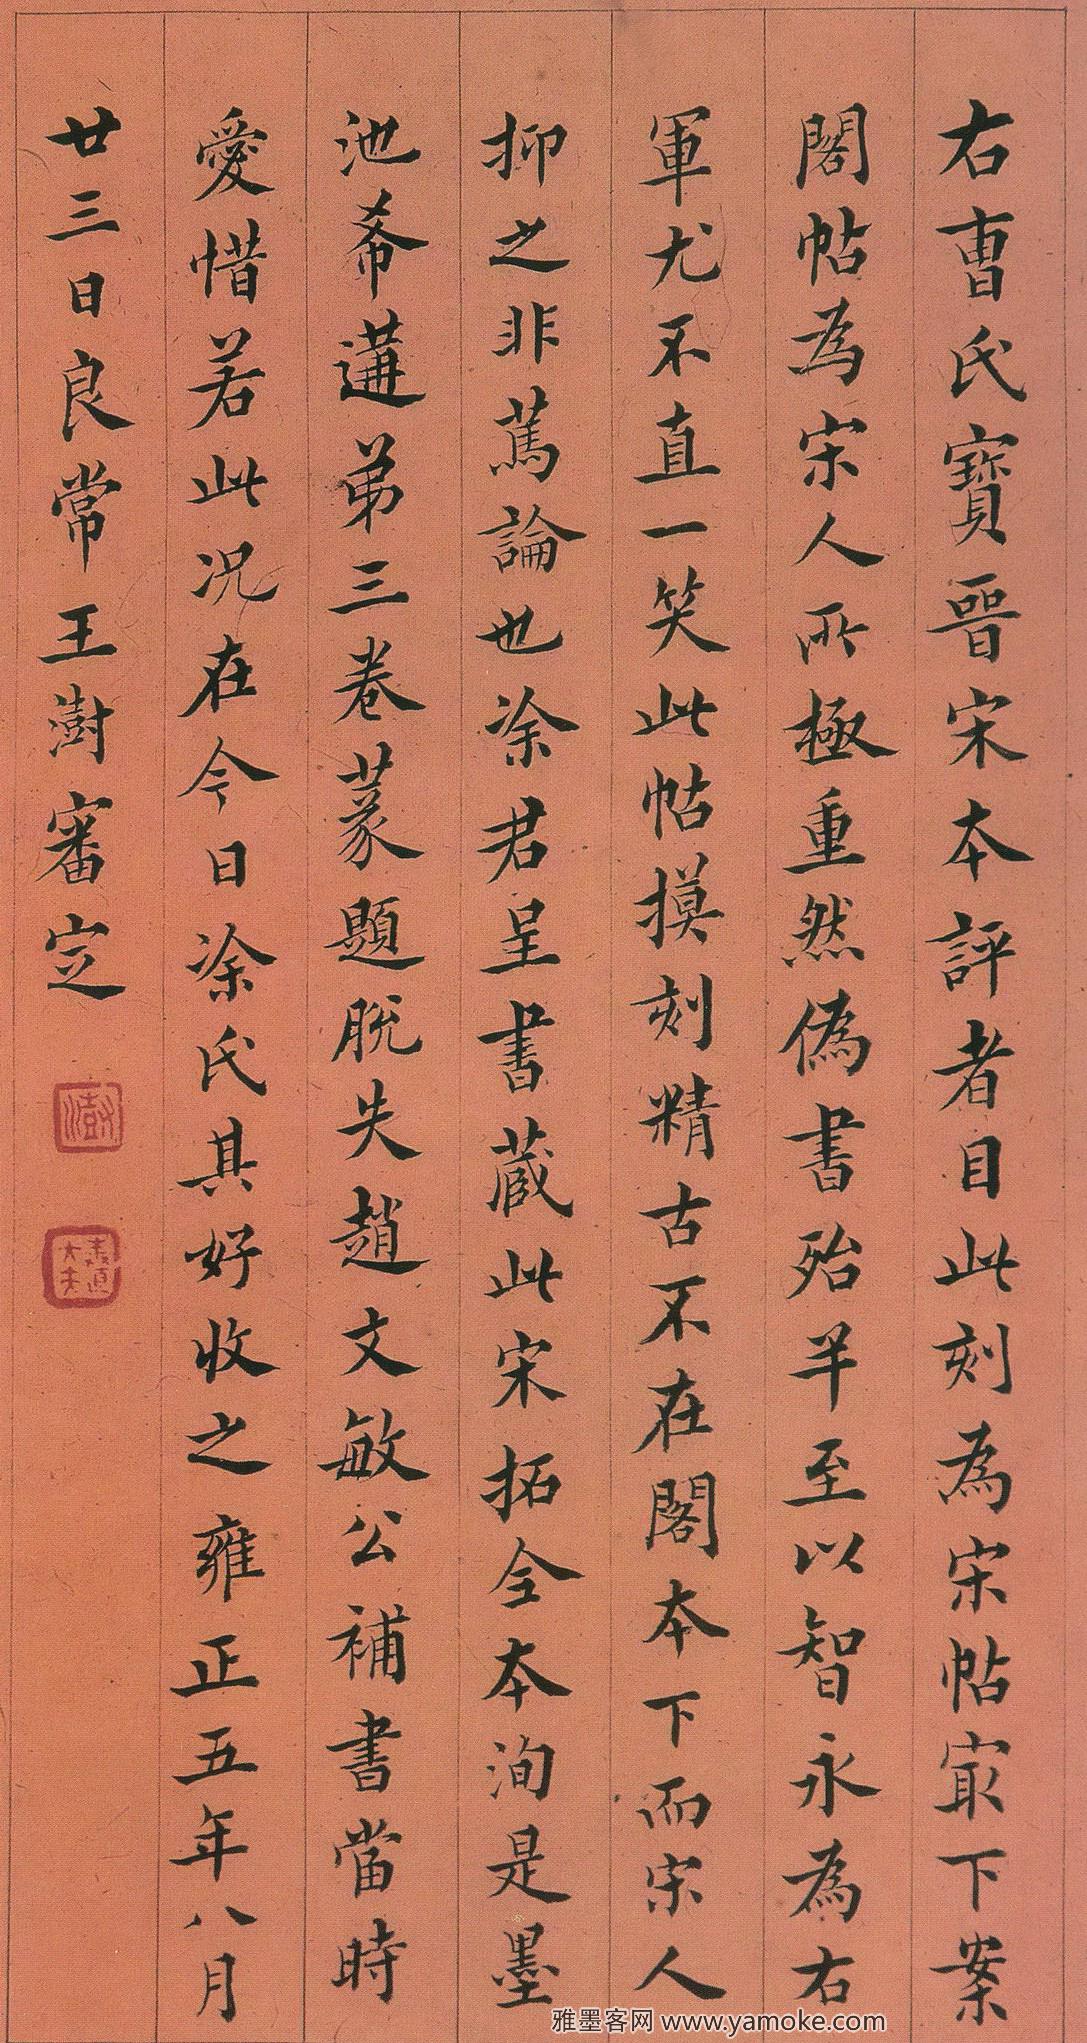 右曺氏寶晉宋本評者目此刻為宋帖冣下案
閣帖為宋人所極重然偽書殆半至以智永為右
軍尤不直一笑此帖摸刻精古不在閣本下而宋人
抑之非篤論也涂君呈書蔵此宋拓全本洵是墨
池希遘弟三卷篆題脫失趙文敏公補書當時
愛惜若此况在今日涂氏其好收之雍正五年八月
廿三日良常王澍審定
澍
雅墨客网 www.yamoke.com